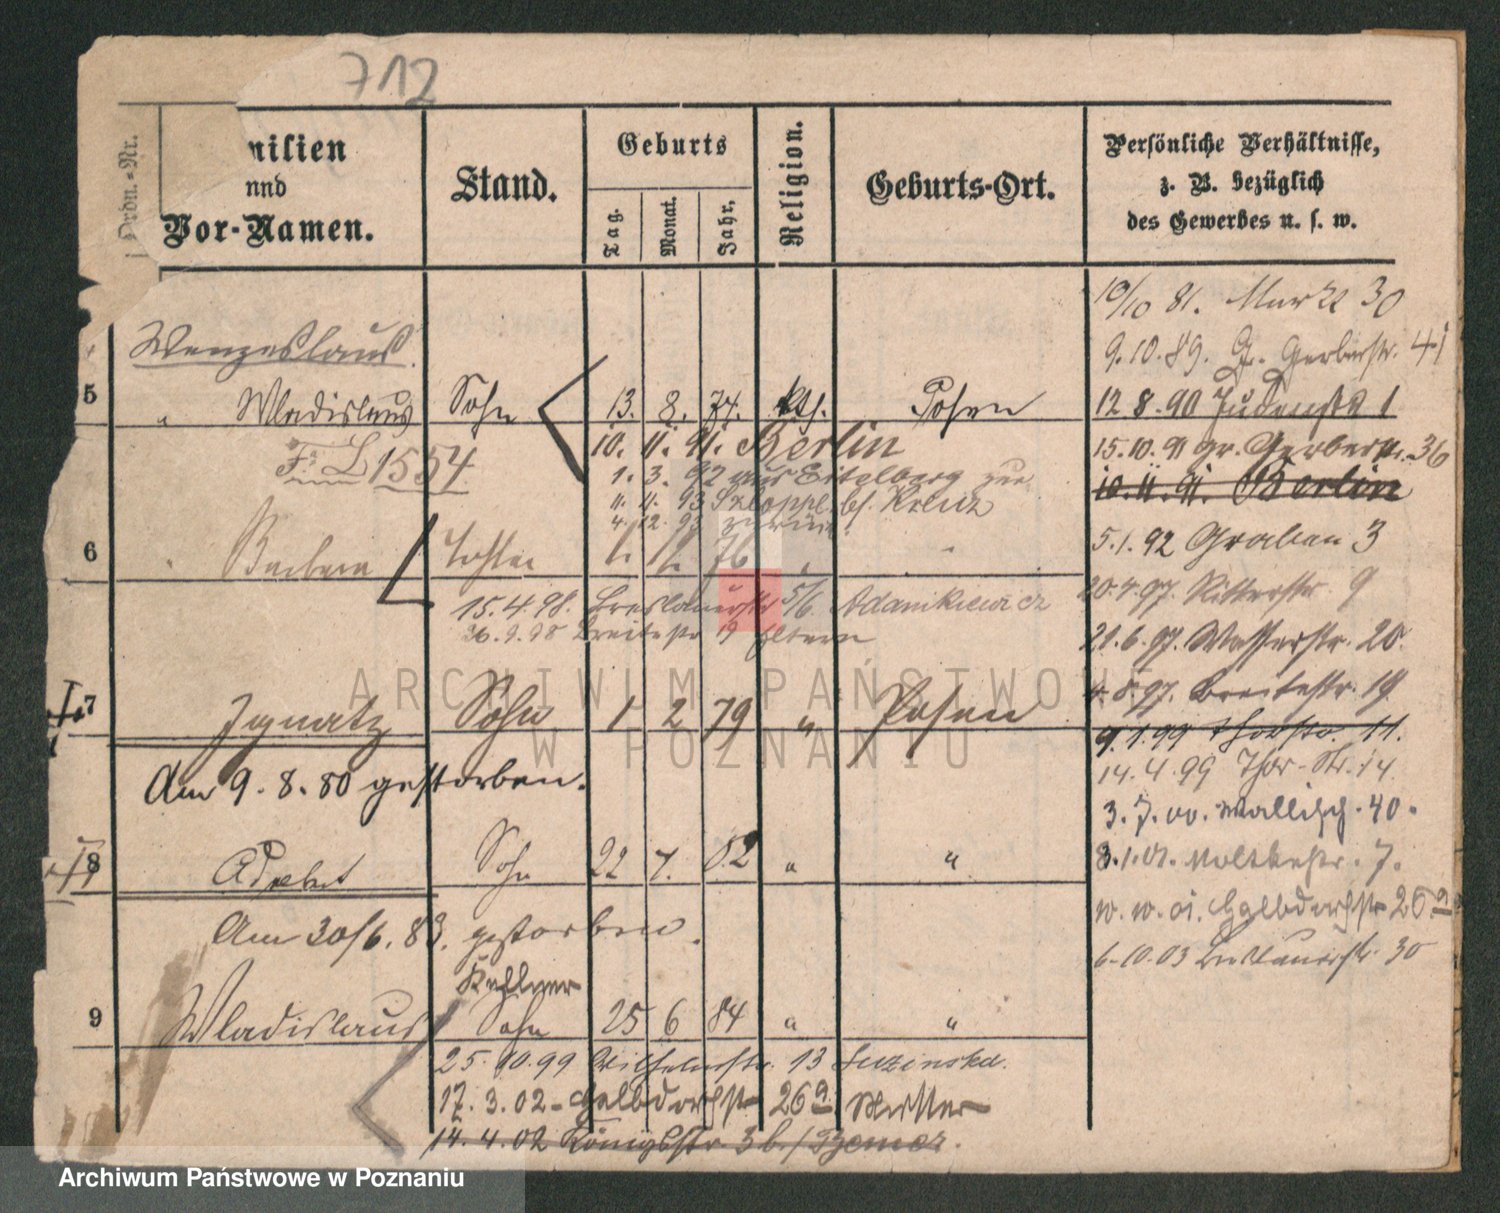 712
Ordn.-Nr.
milien
und
Vor-Namen.
Stand.
Geburts
Tag.
Monat.
Jahr.
Religion.
Geburts-Ort.
Persönliche Verhältnisse,
z. B. bezüglich
des Gewerbes u. s. w.
10/10 81. Markt 30
Wenzeslaus.
9.10.89. G. Gerberstr. 41
5 " Wladislaus Sohn 13. 8. 74. kth. Posen
12 8.90 Judenstr 1
10. 11. 91. Berlin
15.10.91 gr. Gerberstr. 36
L 1554
1. 3. 92 aus Eitelberg zur
10.11.91. Berlin
11. 11. 93 Schloppe bf. Kreuz
4. 12. 93 zurück.
6 " Barbara Tochter 76 " "
5.1.92 Graben 3
15.4.98. Breslauerstr 5/6 Adamkiewicz
20.4.97. Ritterstr. 9
26.9.98 Breitestr 19 Eltern
21.6.97. Wasserstr. 20.
97. Breitestr. 19
7 Ignatz Sohn 1 2 79 " Posen
9.1.99 Thorstr. 11.
Am 9.8.80 gestorben.
14.4.99 Thor-Str. 14
3.7.00. Wallisch. 40.
8 Sohn 22 7. 82 " "
8.1.01. Moltkestr. 7.
Am 30/6. 83. gestorben.
10.10.01. Halbdorfstr 26a
Kellner
6.10.03 Breslauerstr. 30
9 Wladislaus Sohn 25 6 84 " "
25.10.99 Wilhelmstr. 13
17.3.02 - Halbdorfstr 26a Mutter
14.4.02 Königsstr 3b/
ARCHIWUM PAŃSTWOWE
W POZNANIU
Archiwum Państwowe w Poznaniu